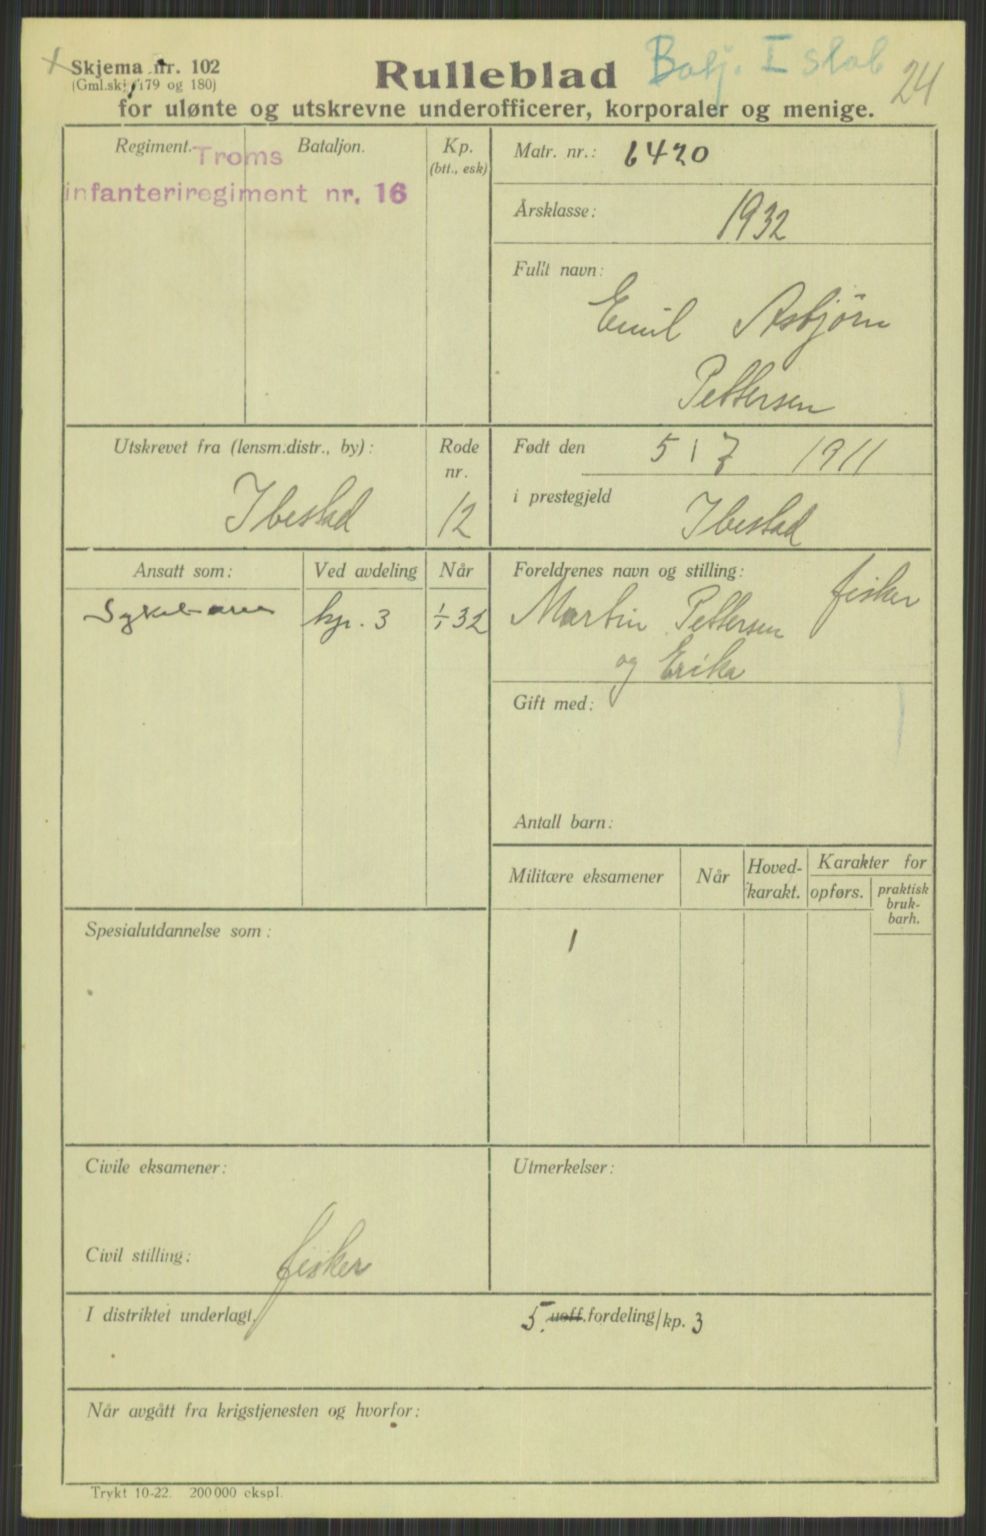 Skjema nr. 102
(Gml.skj. 179 og 180)
Rulleblad
Batj. I stab
24
for ulønte og utskrevne underofficerer, korporaler og menige.
Regiment. Bataljon. Kp. (btt., esk)
Troms
infanteriregiment nr. 16
Matr. nr.: 6420
Årsklasse: 1932
Fullt navn:
Emil Asbjørn
Pettersen
Utskrevet fra (lensm.distr., by):
Ibestad
Rode nr.
12
Født den 5 / 7 1911
i prestegjeld Ibestad
Ansatt som: Ved avdeling Når
kp. 3
1/1 32
Foreldrenes navn og stilling: fisker
Martin Pettersen
og Erika
Gift med:
Antall barn:
Militære eksamener Når Hoved-karakt. Karakter for
opførs. praktisk bruk-barh.
1
Spesialutdannelse som:
Civile eksamener:
Civil stilling: fisker
Utmerkelser:
I distriktet underlagt, 5. uoff.fordeling/kp. 3
Når avgått fra krigstjenesten og hvorfor:
Trykt 10-22. 200000 ekspl.